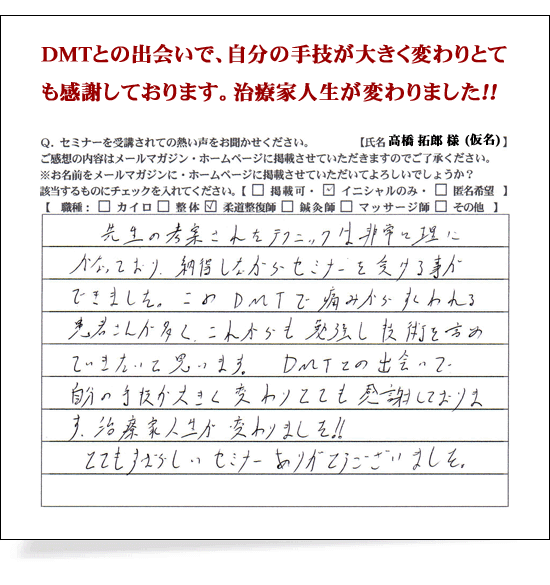 DMTとの出会いで、自分の手技が大きく変わりとて
も感謝しております。治療家人生が変わりました!!
Q．セミナーを受講されての熱い声をお聞かせください。 【氏名 高橋 拓郎 様 (仮名)】
ご感想の内容はメールマガジン・ホームページに掲載させていただきますのでご了承ください。
※お名前をメールマガジンに・ホームページに掲載させていただいてよろしいでしょうか？
該当するものにチェックを入れてください。【 □ 掲載可・ ☑ イニシャルのみ・ □ 匿名希望 】
【 職種： □ カイロ □ 整体 ☑ 柔道整復師 □ 鍼灸師 □ マッサージ師 □ その他 】
先生の考案されたテクニックは非常に理に
かなっており、納得しながらセミナーを受ける事が
できました。このDMTで痛みからすくわれる
患者さんが多く、これからも勉強し技術を高め
ていきたいと思います。 DMTとの出会いで
自分の手技が大きく変わりとても感謝しておりま
す。治療家人生が変わりました!!
とてもすばらしいセミナーありがとうございました。